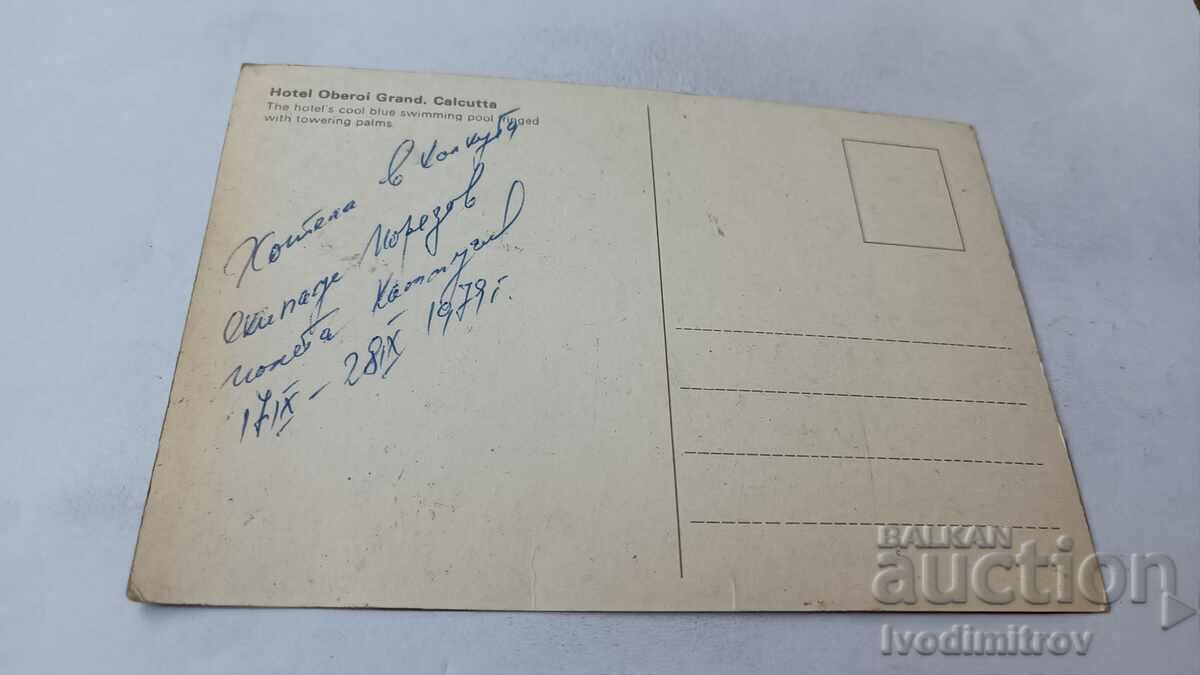 Hotel Oberoi Grand, Calcutta
The hotel's cool blue swimming pool ringed
with towering palms.
Хотела в Калкута
екипаж
полета
17IX – 28IX 1979г.
BALKAN
auction
Ivodimitrov